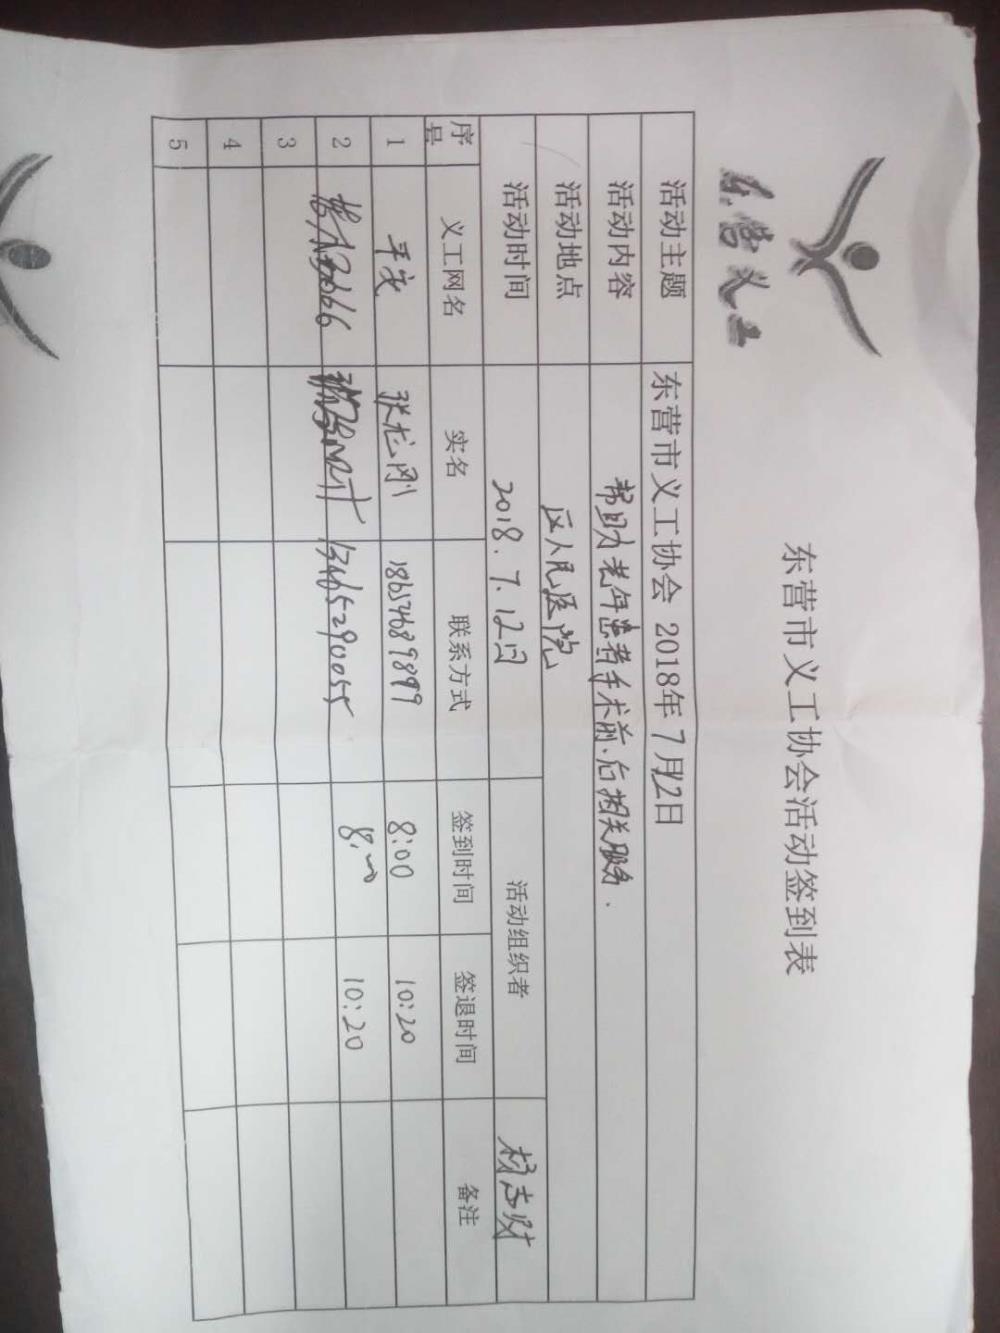 东营义工
东营市义工协会活动签到表
活动主题 东营市义工协会 2018年 7月12日
活动内容 帮助老年患者手术前、后相关服务.
活动地点 区人民医院
活动时间 2018.7.12日 活动组织者 杨志财
序号 义工网名 实名 联系方式 签到时间 签退时间 备注
1 平安 张龙刚 18654689899 8:00 10:20
2 13465290055 8:00 10:20
3
4
5